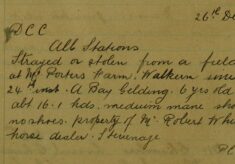 26th De
DCC
All Stations
Strayed or stolen from a field
at Mr Porters Farm. Walkern since
24th inst. A Bay Gelding. 6 yrs old
abt 16.1 hds. medium mane sho
no shoes. property of Mr Robert Whe
horse dealer. Stevenage
P.C